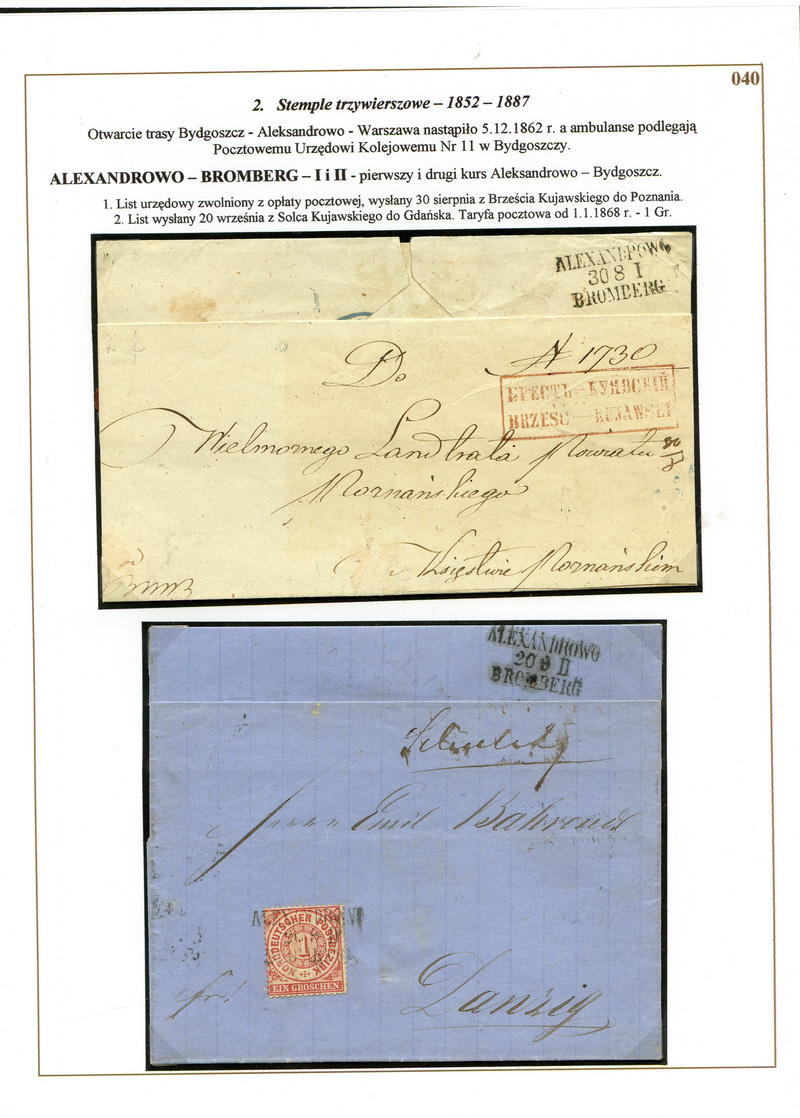 040
2. Stemple trzywierszowe – 1852 – 1887
Otwarcie trasy Bydgoszcz - Aleksandrowo - Warszawa nastąpiło 5.12.1862 r. a ambulanse podlegają
Pocztowemu Urzędowi Kolejowemu Nr 11 w Bydgoszczy.
ALEXANDROWO – BROMBERG – I i II - pierwszy i drugi kurs Aleksandrowo – Bydgoszcz.
1. List urzędowy zwolniony z opłaty pocztowej, wysłany 30 sierpnia z Brześcia Kujawskiego do Poznania.
2. List wysłany 20 września z Solca Kujawskiego do Gdańska. Taryfa pocztowa od 1.1.1868 r. - 1 Gr.
ALEXANDROWO
30 8 I
BROMBERG
Do
N 1730
БРЕСТЬ – КУЯВСКІЙ
BRZEŚĆ — KUJAWSKI
Wielmożnego Landrata Powiatu
Poznańskiego
Księstwie Poznańskiem
ALEXANDROWO
20 9 II
BROMBERG
Herrn Emil
NORDDEUTSCHER POSTBEZIRK
1
EIN GROSCHEN
fr!
Danzig